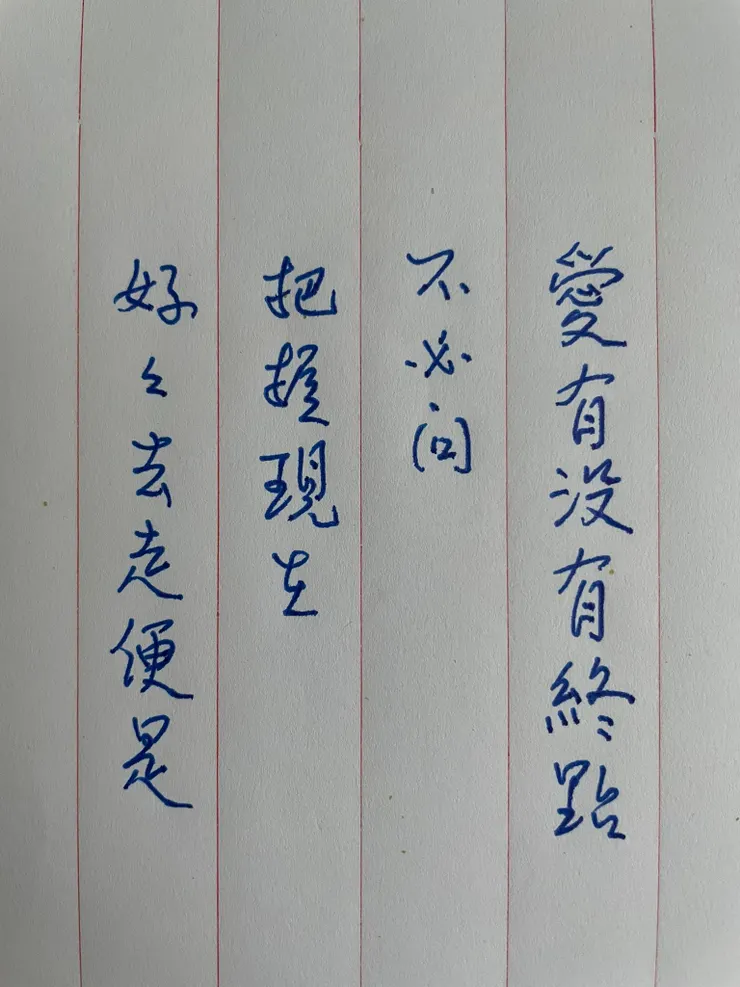 愛有没有終點
不必问
把握現在
好々去走便是